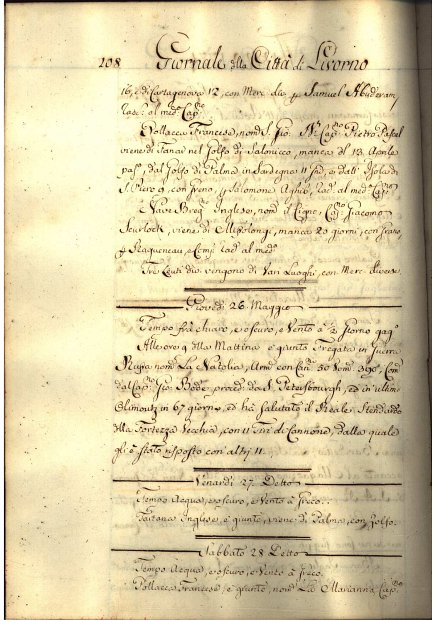 208 Giornale della Città di Livorno
16, e di Cartagenova 12, con Merc. div. p Samuel Abuderam,
Racc: al med.º Cap.no
Pollacca Francese, nom. S. Gio: Cap.no Pietro
viene di nel Golfo di Salonicco, manca dì 13 Aprile
pas.º, dal Golfo di Palma in Sardegna 11 e dall' Isola di
S. Piero 9, con Greno, p Salomone Rac. al med.º Cap.no
Nave Inglese, nom. il Cigne, Cap.no Giacomo
Scurlock, viene di Missolongi, manca 20 giorni, con grano,
p e Comp. Rac. al med.º
Tre Leuti che vengono di Vari Luoghi, con Merc. diverse
Giovedì 26. Maggio
Tempo frà chiaro, e oscuro, e Vento à
Alle ore 9 della Mattina è giunto Fregata in Guerra
Russa nom. La Natolia, Arm. con Can. 50 Uom. 390, Com.
dal Cap.no Gio: Bode proced. da S. Petersbourgh, ed in ultimo
in 67 giorni, ed hà Salutato il Reale Stendardo
della Fortezza Vecchia, con 11 Tiri di Cannone, dalla quale
gli è stato risposto con altri 11.
Venardì 27 Detto
Tempo Acqua, e oscuro, e Vento à Greco.
Tartana Inglese, è giunta, viene di Palma, con Zolfo.
Sabbato 28 Detto
Tempo Acqua, e oscuro, e Vento à Greco.
Pollacca Francese, è giunta, nom. La Marianna, Cap.no